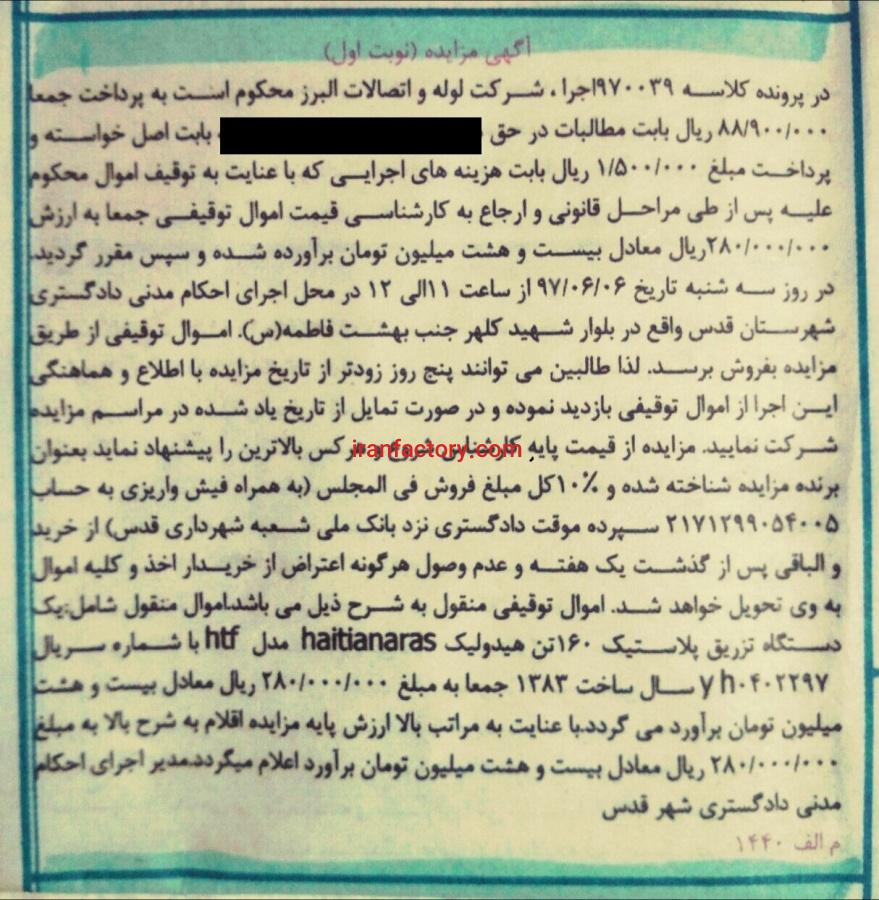 آگهی مزایده (نوبت اول)
در پرونده کلاسه ۹۷۰۰۳۹اجرا ، شرکت لوله و اتصالات البرز محکوم است به پرداخت جمعا
۸۸/۹۰۰/۰۰۰ ریال بابت مطالبات در حق بابت اصل خواسته و
پرداخت مبلغ ۱/۵۰۰/۰۰۰ ریال بابت هزینه های اجرایی که با عنایت به توقیف اموال محکوم
علیه پس از طی مراحل قانونی و ارجاع به کارشناسی قیمت اموال توقیفی جمعا به ارزش
۲۸۰/۰۰۰/۰۰۰ریال معادل بیست و هشت میلیون تومان برآورده شده و سپس مقرر گردید.
در روز سه شنبه تاریخ ۹۷/۰۶/۰۶ از ساعت ۱۱الی ۱۲ در محل اجرای احکام مدنی دادگستری
شهرستان قدس واقع در بلوار شهید کلهر جنب بهشت فاطمه(س). اموال توقیفی از طریق
مزایده بفروش برسد. لذا طالبین می توانند پنج روز زودتر از تاریخ مزایده با اطلاع و هماهنگی
این اجرا از اموال توقیفی بازدید نموده و در صورت تمایل از تاریخ یاد شده در مراسم مزایده
شرکت نمایید. مزایده از قیمت پایه کارشناس شروع و هرکس بالاترین را پیشنهاد نماید بعنوان
iranfactory.com
برنده مزایده شناخته شده و ۱۰٪کل مبلغ فروش فی المجلس (به همراه فیش واریزی به حساب
۲۱۷۱۲۹۹۰۵۴۰۰۵ سپرده موقت دادگستری نزد بانک ملی شعبه شهرداری قدس) از خرید
و الباقی پس از گذشت یک هفته و عدم وصول هرگونه اعتراض از خریدار اخذ و کلیه اموال
به وی تحویل خواهد شد. اموال توقیفی منقول به شرح ذیل می باشد.اموال منقول شامل:یک
دستگاه تزریق پلاستیک ۱۶۰تن هیدولیک haitianaras مدل htf با شماره سریال
yh۰۴۰۲۲۹۷ سال ساخت ۱۳۸۳ جمعا به مبلغ ۲۸۰/۰۰۰/۰۰۰ ریال معادل بیست و هشت
میلیون تومان برآورد می گردد.با عنایت به مراتب بالا ارزش پایه مزایده اقلام به شرح بالا به مبلغ
۲۸۰/۰۰۰/۰۰۰ ریال معادل بیست و هشت میلیون تومان برآورد اعلام میگردد.مدیر اجرای احکام
مدنی دادگستری شهر قدس
م الف ۱۴۴۰